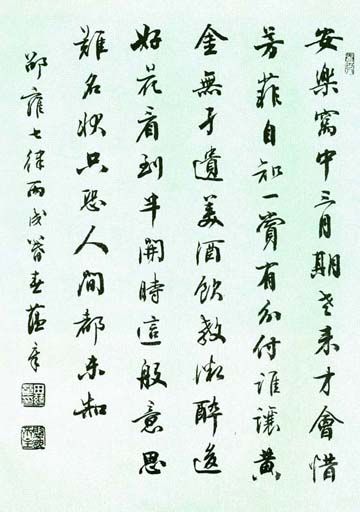 安樂窩中三月期老來才會惜
芳菲自知一賞有分付誰讓黃
金無孑遺美酒飲教微醉後
好花看到半開時這般意思
難名狀只恐人間都未知
邵雍七律丙戌春蘊章